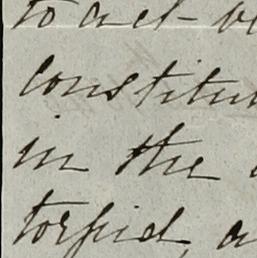 to act
constitu
in the
torpid, a